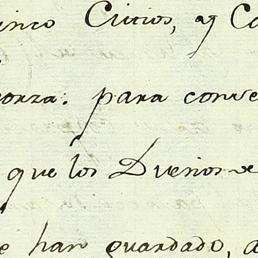 inco Citios, y Ca
orza: para conve
que los Dueños de
e han guardado, a